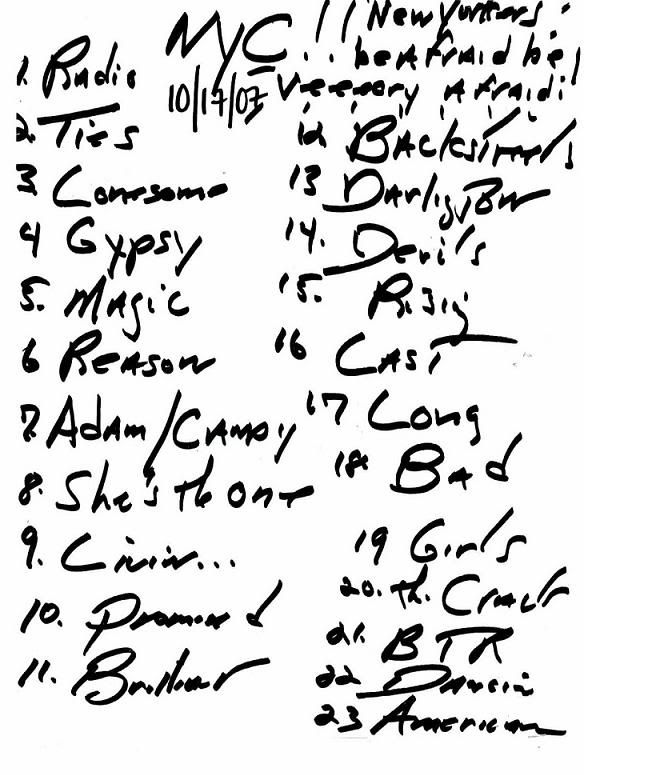 NYC !! New Yorkers!
... be Afraid be
10/17/07 Veeeory Afraid!
1. Radio
2. Ties
3 Lonesome
4 Gypsy
5. Magic
6 Reason
7. Adam/Candy
8. She's th One
9. Livin...
10. Promised
11. Brilliant
12 Backstreets
13 Darling
14. Devil's
15. Risig
16 Last
17 Long
18. Bad
19 Girls
20. th.
21. BTR
22 Dancin
23 American